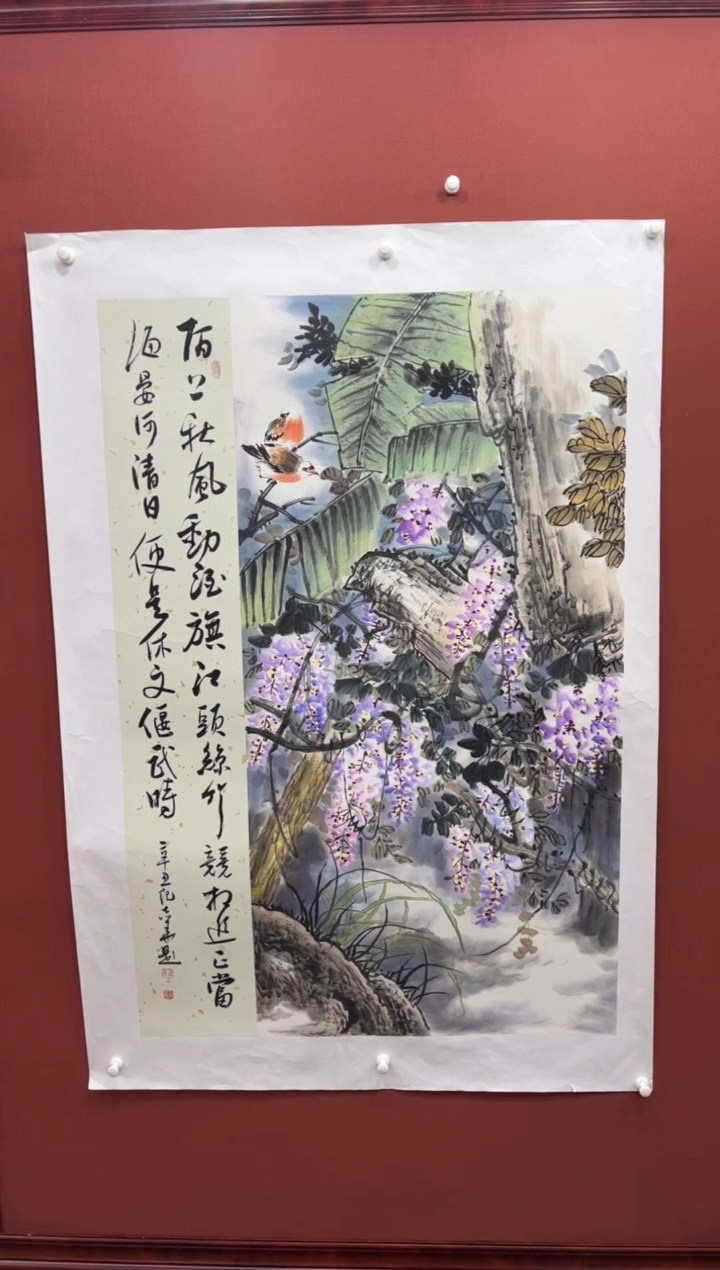 陌上秋風動酒旗江頭絲竹競相追正當
海晏河清日便是休文偃武時
辛丑
題